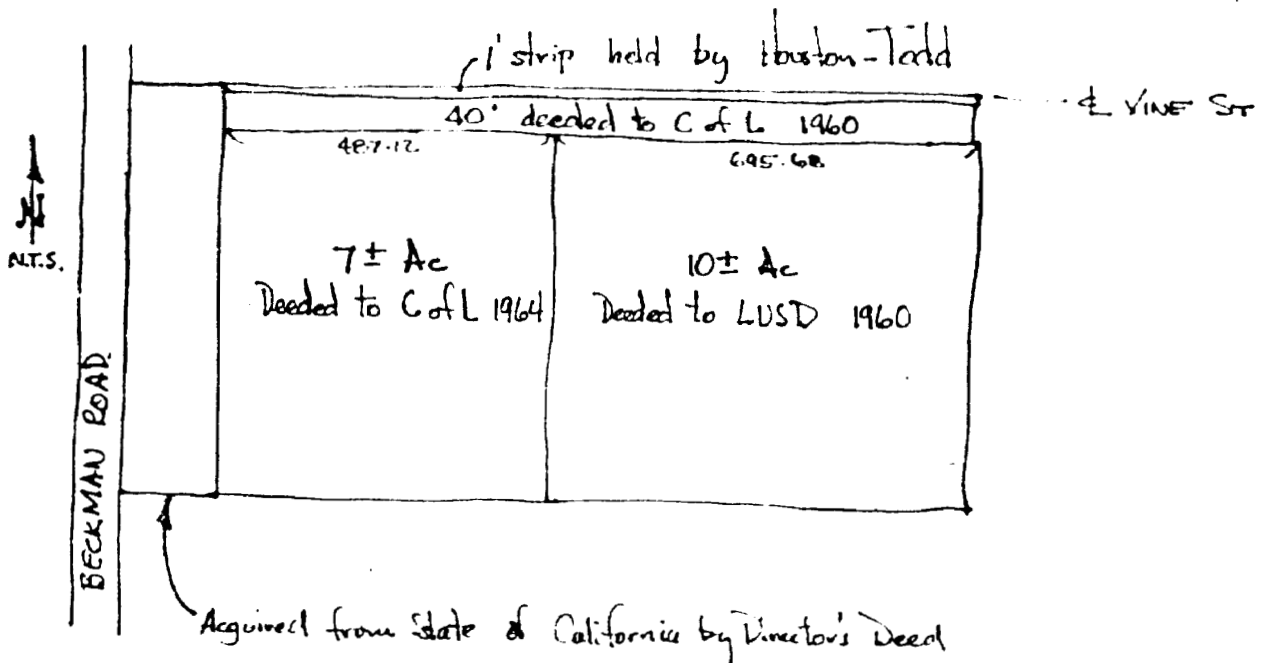 1' strip held by Houston-Todd
℄ VINE ST
40' deeded to C of L 1960
487.12
695.68
N
N.T.S.
7± Ac
Deeded to C of L 1964
10± Ac
Deeded to LUSD 1960
BECKMAN ROAD
Acquired from State of California by Director's Deed